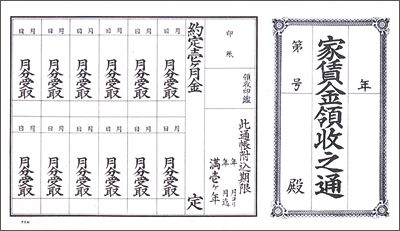 家賃金領収之通
年
第
号
殿
印紙
領收印鑑
此通帳附込期限
年 月ヨリ
年 月迄
満壱ヶ年
約定壱ヶ月金
定
月 日 月 日 月 日 月 日 月 日 月 日
月分受取 月分受取 月分受取 月分受取 月分受取 月分受取
月 日 月 日 月 日 月 日 月 日 月 日
月分受取 月分受取 月分受取 月分受取 月分受取 月分受取